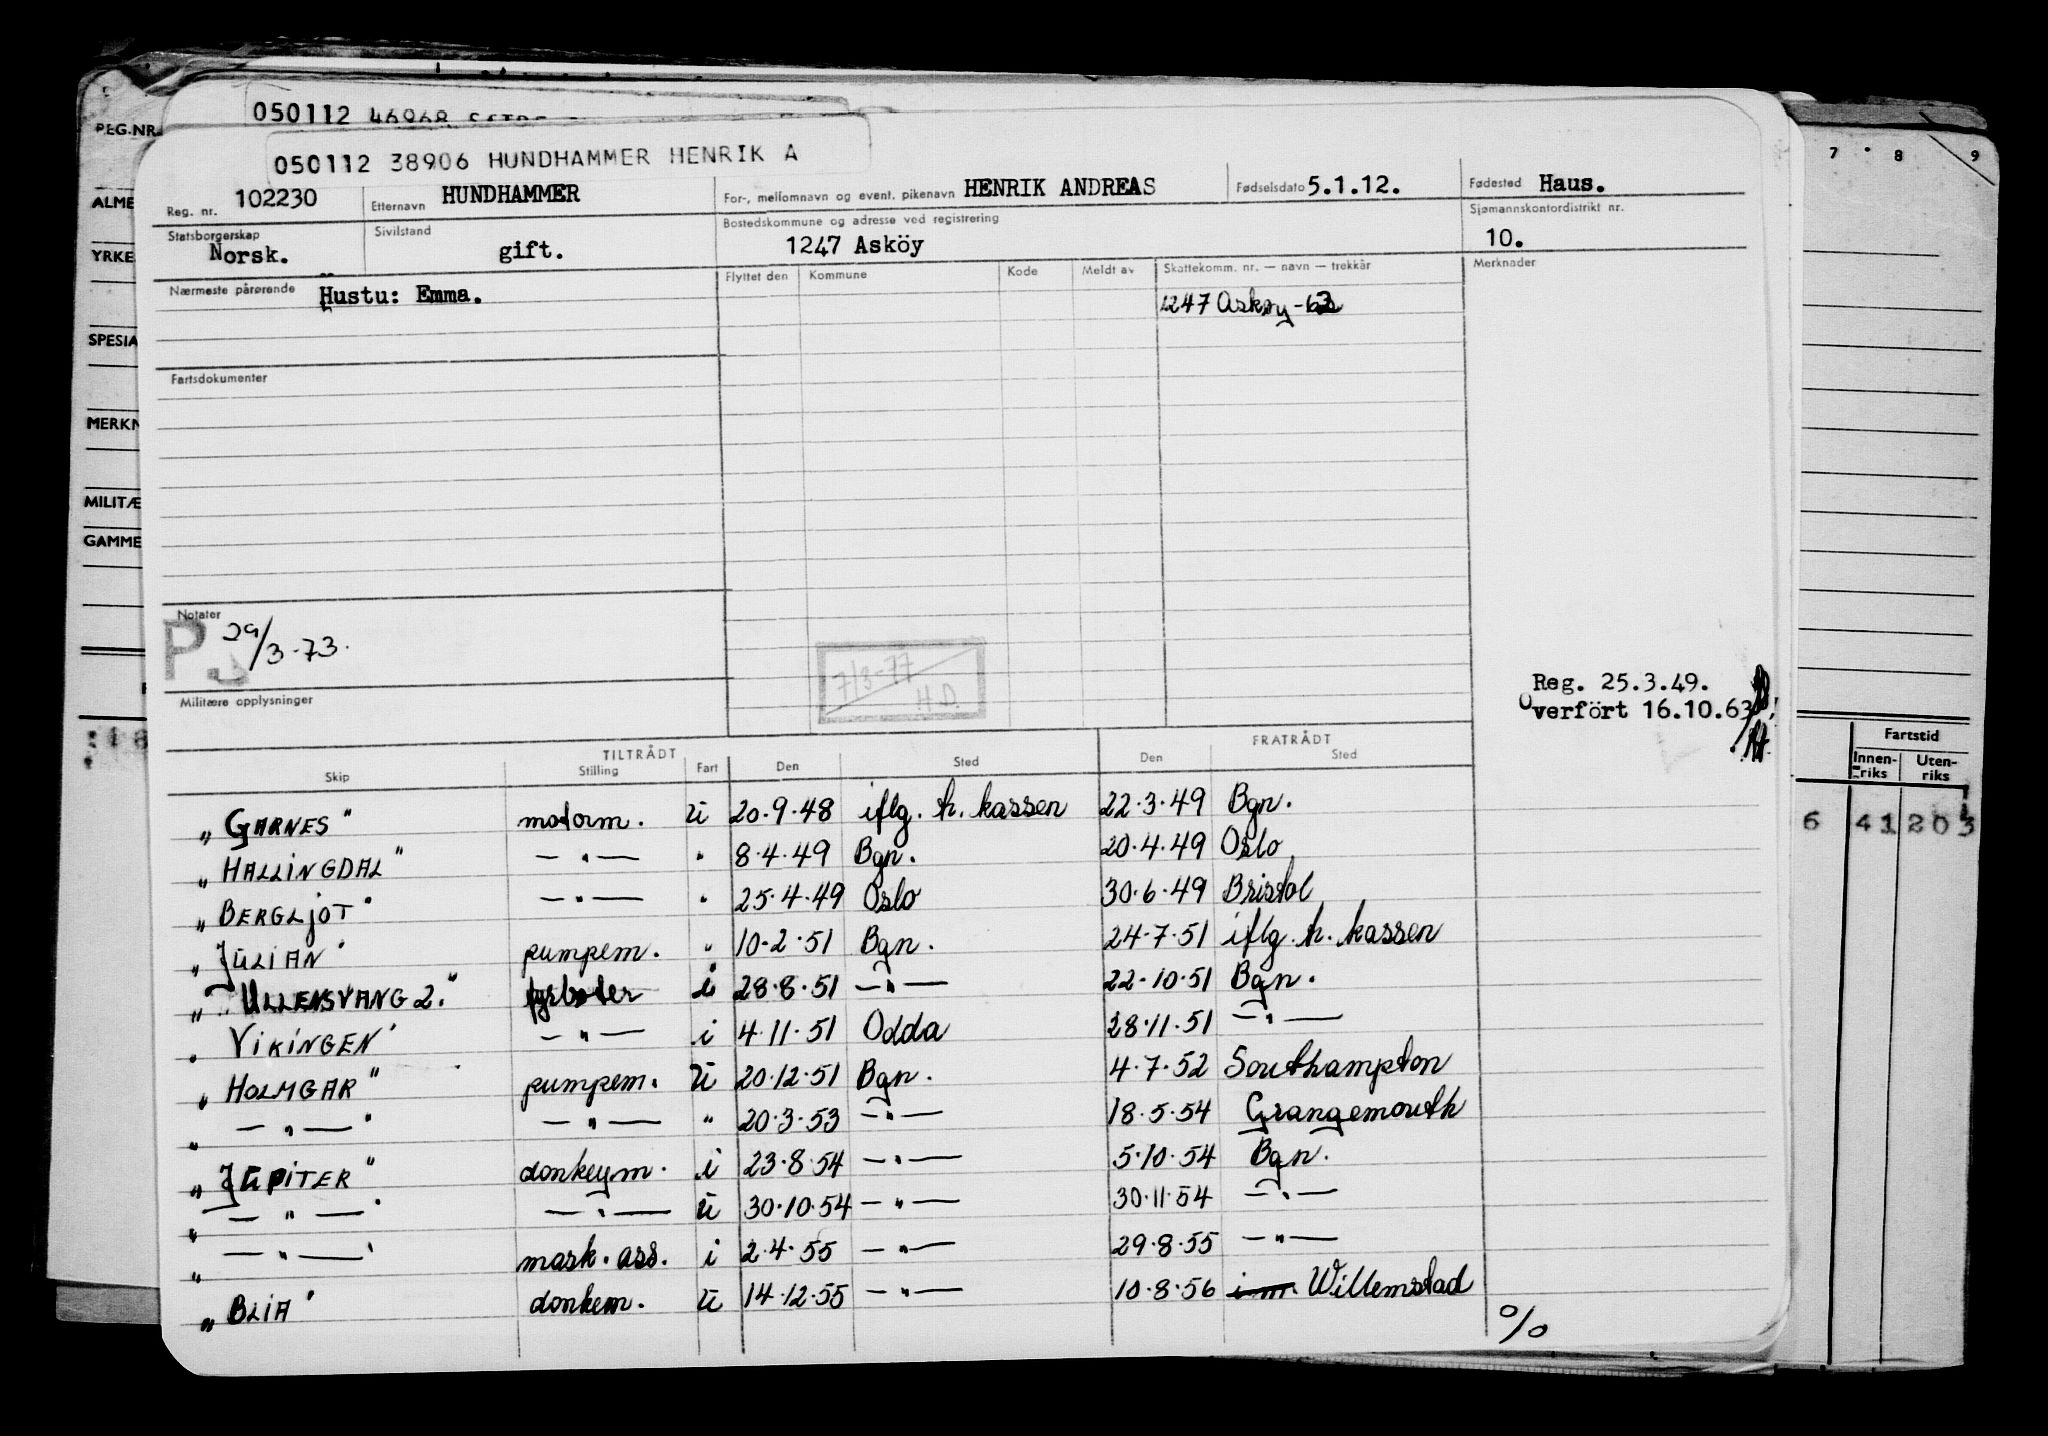 050112 46968
050112 38906 HUNDHAMMER HENRIK A
REG.NR.
ALME
YRKE
SPESIA
MERKN
MILITÆ
GAMME
7 8 9
Reg. nr. 102230 Etternavn HUNDHAMMER For-, mellomnavn og event. pikenavn HENRIK ANDREAS Fødselsdato 5.1.12. Fødested Haus.
Statsborgerskap Norsk. Sivilstand gift. Bostedskommune og adresse ved registrering 1247 Asköy Sjømannskontordistrikt nr. 10.
Nærmeste pårørende Hustu: Emma. Flyttet den Kommune Kode Meldt av Skattekomm. nr. — navn — trekkår Merknader
1247 Askøy-63
Fartsdokumenter
Notater
P. 29/3-73.
7/3-77
H.D.
Militære opplysninger
Reg. 25.3.49.
Overfört 16.10.63
TILTRÅDT FRATRÅDT
Skip Stilling Fart Den Sted Den Sted
„ GARNES " motorm. U 20.9.48 iflg. h. kassen 22.3.49 Bgn.
„ HALLINGDAL " — " — " 8.4.49 Bgn. 20.4.49 Oslo
„ BERGLJOT " — " — " 25.4.49 Oslo 30.6.49 Bristol
„ JULIAN " pumpem. " 10.2.51 Bgn. 24.7.51 iflg. h. kassen
„ ULLENSVANG 2. " fyrbøter i 28.8.51 — " — 22.10.51 Bgn.
„ VIKINGEN " — " — i 4.11.51 Odda 28.11.51 — " —
„ HOLMGAR " pumpem. U 20.12.51 Bgn. 4.7.52 Southampton
„ — " — " — " — " 20.3.53 — " — 18.5.54 Grangemouth
„ JUPITER " donkeym. i 23.8.54 — " — 5.10.54 Bgn.
„ — " — " — " — U 30.10.54 — " — 30.11.54 — " —
„ — " — " mask. ass. i 2.4.55 — " — 29.8.55 — " —
„ BLIA " donkem. U 14.12.55 — " — 10.8.56 i m. Willemstad
%
Fartstid
Innen-riks Uten-riks
6 41 203